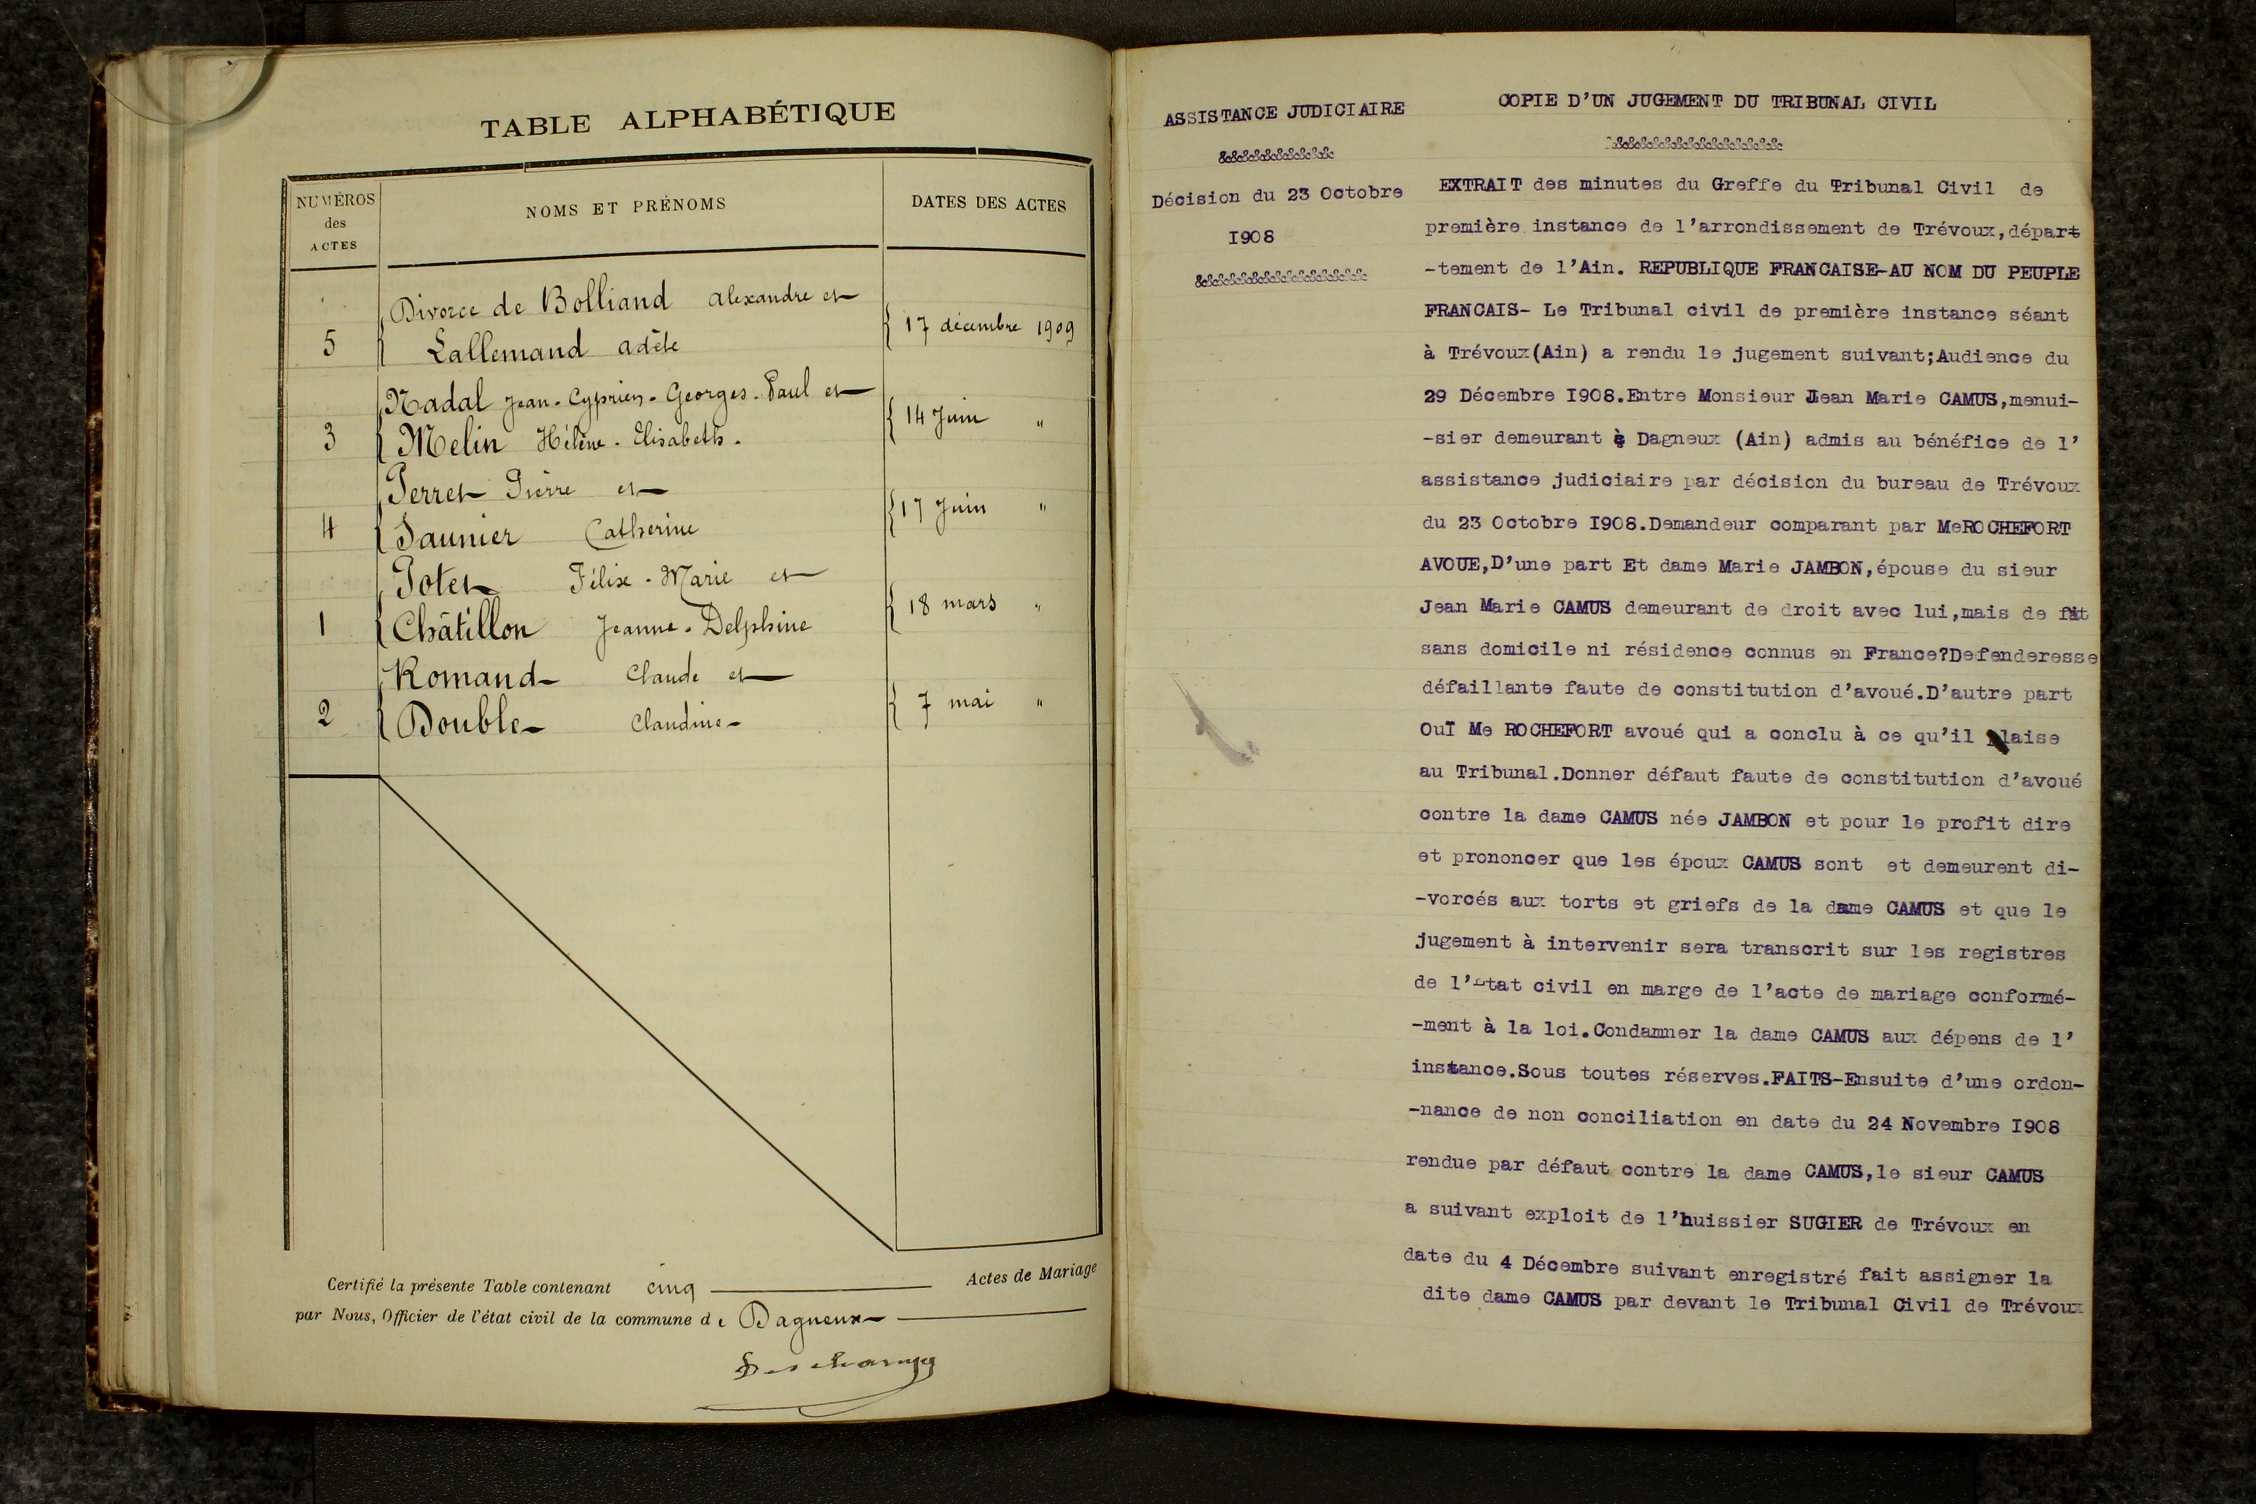 TABLE ALPHABÉTIQUE
NUMÉROS
des
ACTES
NOMS ET PRÉNOMS
DATES DES ACTES
Divorce de Bolliand Alexandre et
5 Lallemand Adèle 17 décembre 1909
Nadal Jean-Cyprien-Georges-Paul et
3 Melin Hélène-Elisabeth. 14 Juin "
Perret Pierre et
4 Saunier Catherine 17 Juin "
Potet Félix-Marie et
1 Châtillon Jeanne-Delphine 18 mars "
Romand Claude et
2 Double Claudine 7 mai "
Certifié la présente Table contenant cinq Actes de Mariage
par Nous, Officier de l'état civil de la commune de Dagneux
ASSISTANCE JUDICIAIRE
&&&&&&&&&&&&
Décision du 23 Octobre
I908
&&&&&&&&&&&&&&&&&&
COPIE D'UN JUGEMENT DU TRIBUNAL CIVIL
&&&&&&&&&&&&&&&&&&
EXTRAIT des minutes du Greffe du Tribunal Civil de
première instance de l'arrondissement de Trévoux,départ
-tement de l'Ain. REPUBLIQUE FRANCAISE-AU NOM DU PEUPLE
FRANCAIS- Le Tribunal civil de première instance séant
à Trévoux(Ain) a rendu le jugement suivant;Audience du
29 Décembre I908.Entre Monsieur Jean Marie CAMUS,menui-
-sier demeurant à Dagneux (Ain) admis au bénéfice de l'
assistance judiciaire par décision du bureau de Trévoux
du 23 Octobre I908.Demandeur comparant par MeROCHEFORT
AVOUE,D'une part Et dame Marie JAMBON,épouse du sieur
Jean Marie CAMUS demeurant de droit avec lui,mais de fait
sans domicile ni résidence connus en France?Defenderesse
défaillante faute de constitution d'avoué.D'autre part
OuÏ Me ROCHEFORT avoué qui a conclu à ce qu'il plaise
au Tribunal.Donner défaut faute de constitution d'avoué
contre la dame CAMUS née JAMBON et pour le profit dire
et prononcer que les époux CAMUS sont et demeurent di-
-vorcés aux torts et griefs de la dame CAMUS et que le
jugement à intervenir sera transcrit sur les registres
de l'Etat civil en marge de l'acte de mariage conformé-
-ment à la loi.Condamner la dame CAMUS aux dépens de l'
instance.Sous toutes réserves.FAITS-Ensuite d'une ordon-
-nance de non conciliation en date du 24 Novembre I908
rendue par défaut contre la dame CAMUS,le sieur CAMUS
a suivant exploit de l'huissier SUGIER de Trévoux en
date du 4 Décembre suivant enregistré fait assigner la
dite dame CAMUS par devant le Tribunal Civil de Trévoux